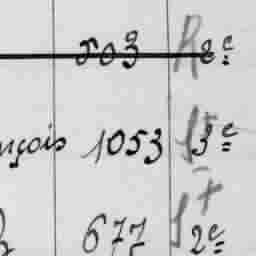 503 R 2e
nçois 1053 f 3e
677 f 2e